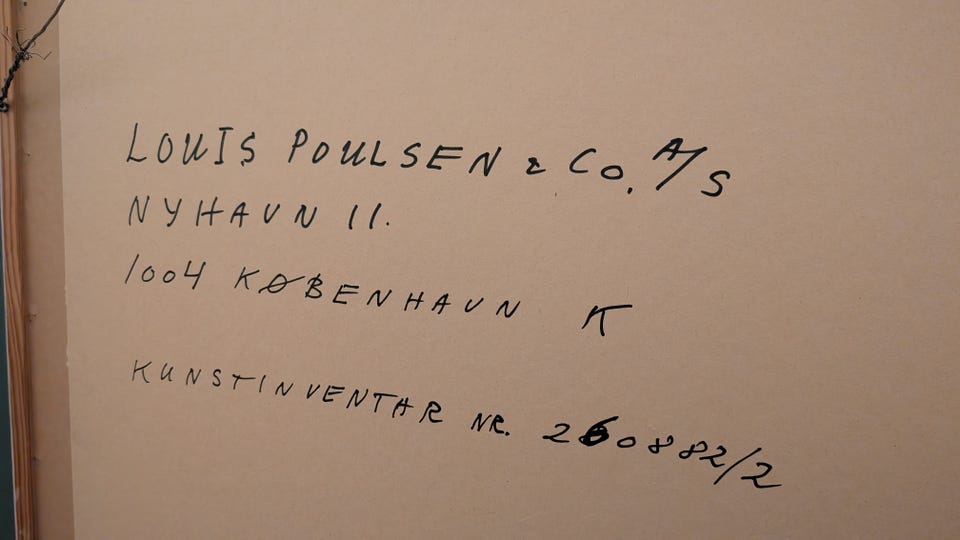 LOUIS POULSEN & Co. A/S
NYHAVN 11.
1004 KØBENHAVN K
KUNSTINVENTAR NR. 260882/2